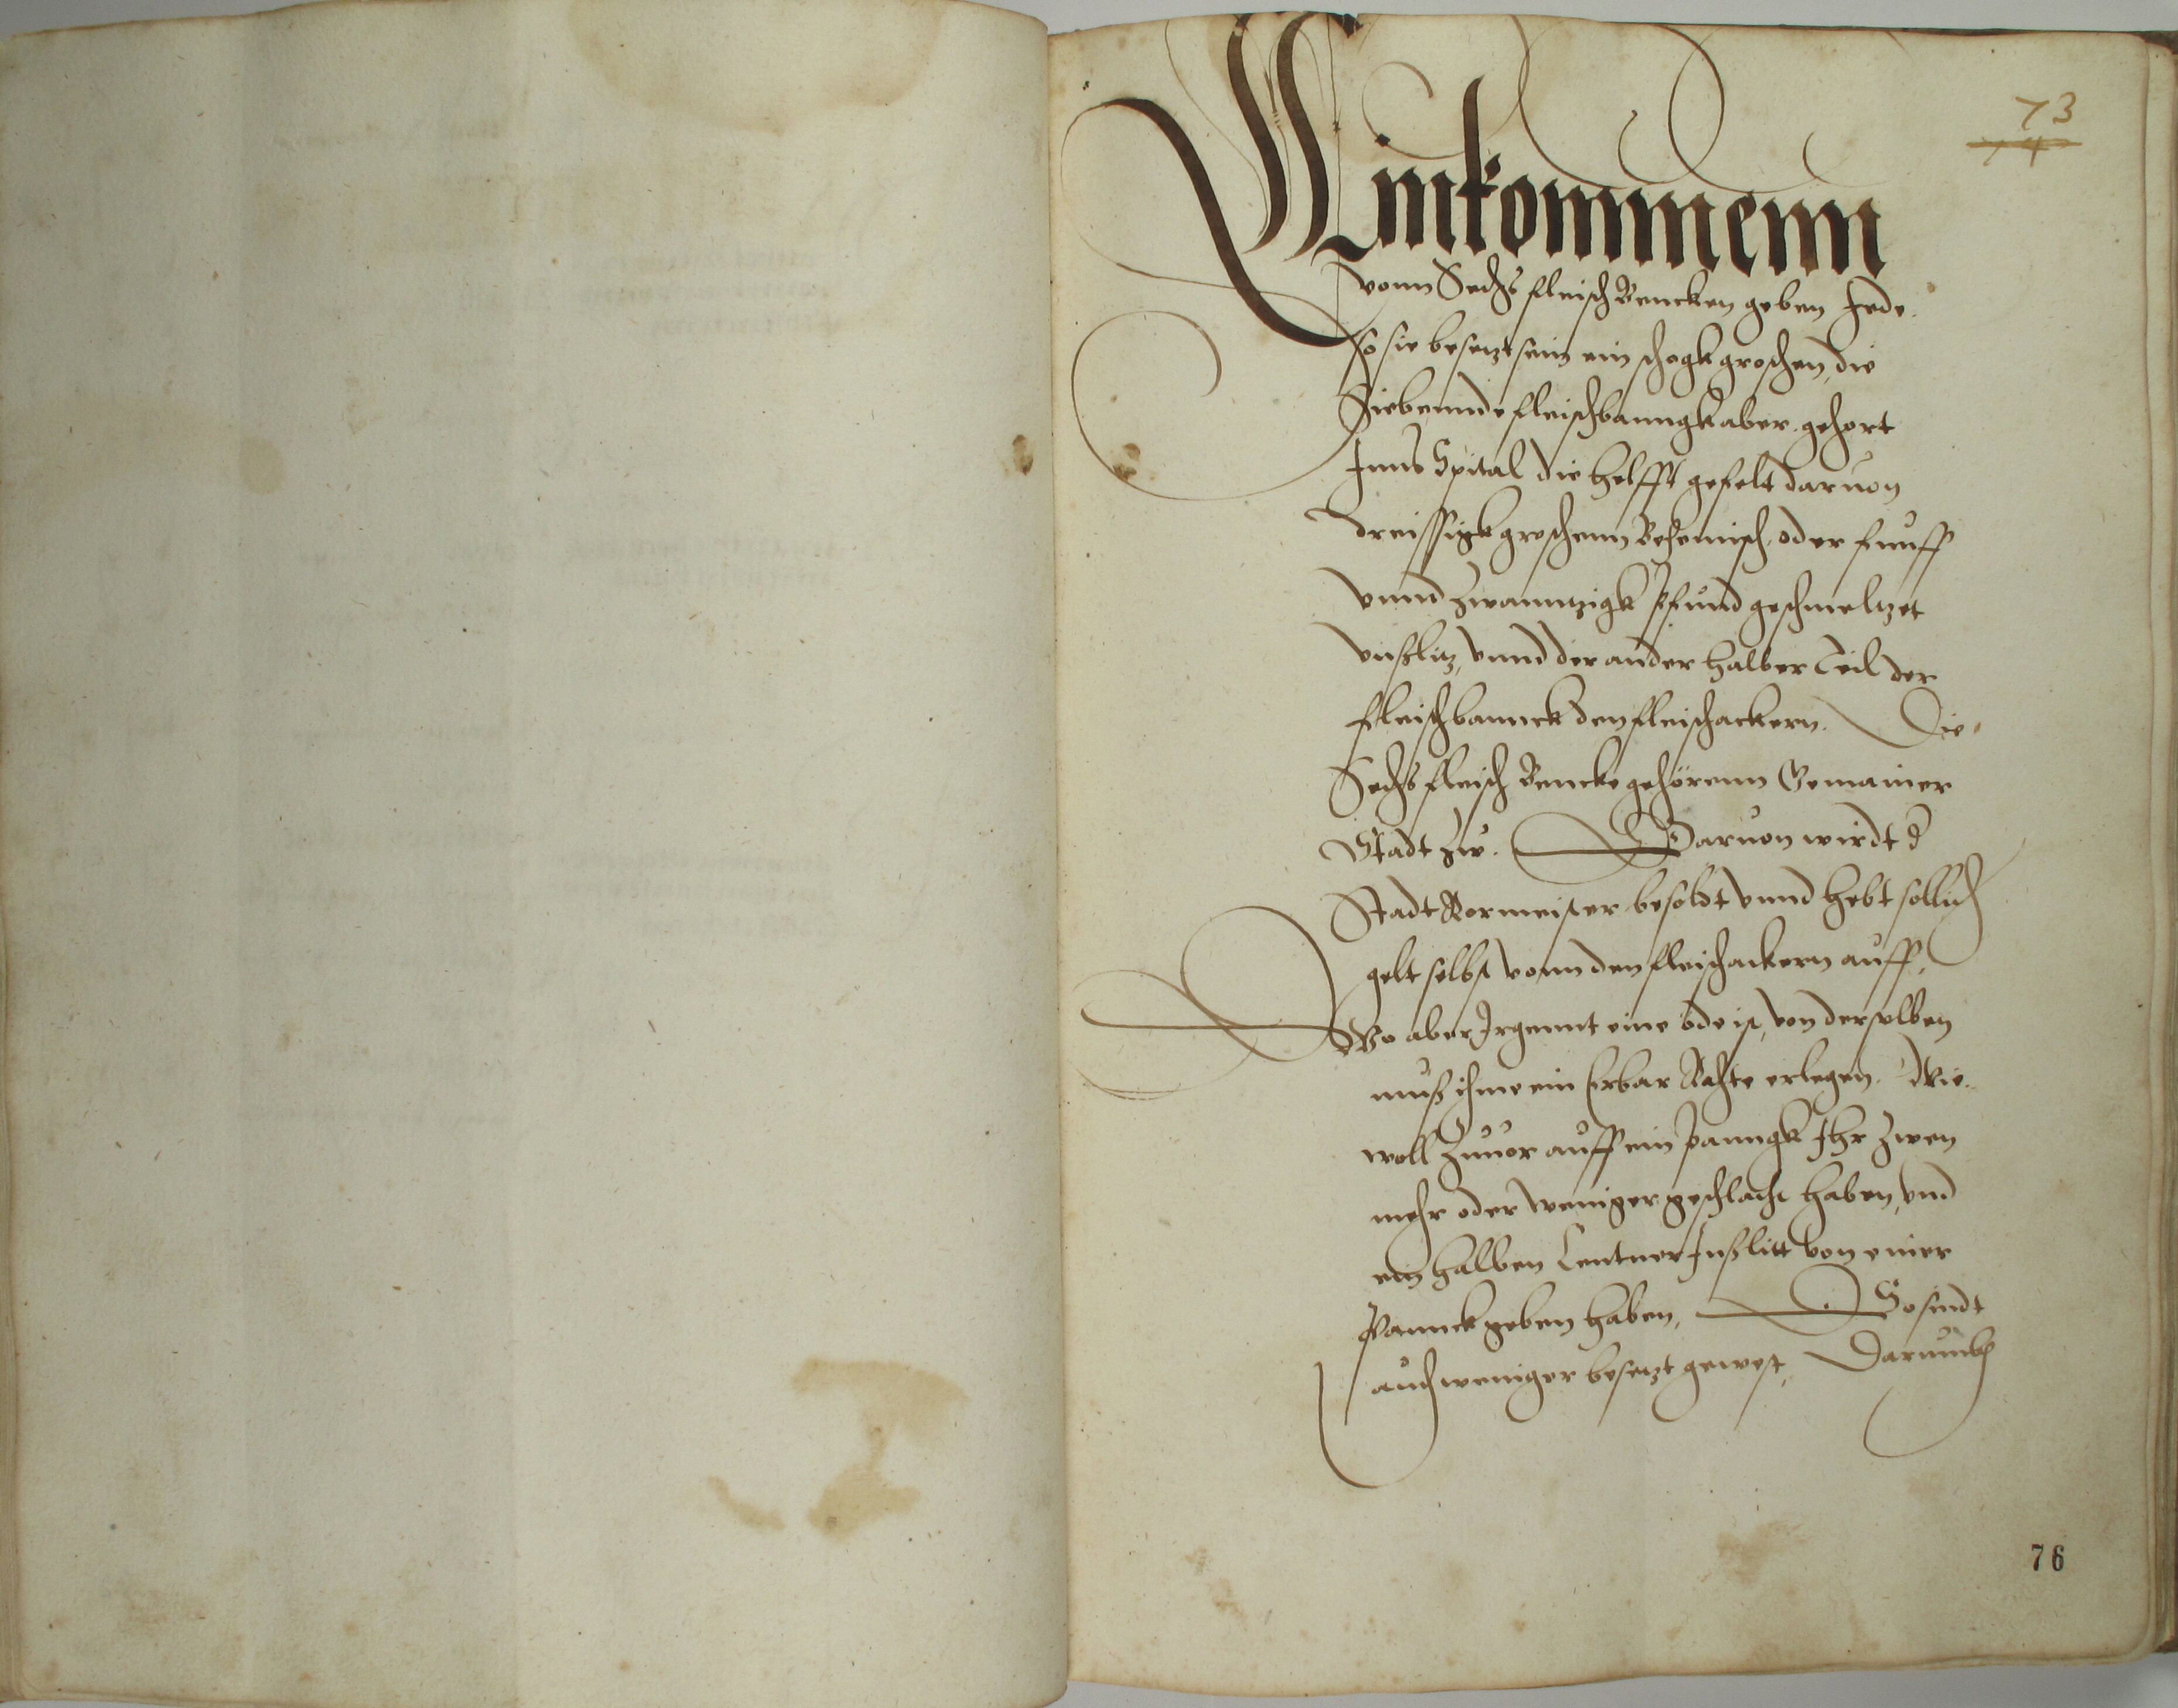 73
74
Einkommenn
vonn Sechs fleisch Bencken geben Jede
so sie besetzt sein ein schogk groschen, die
Siebennde fleischbanngk aber gehort
Inns Spital die helfft gefelt daruon
dreissigk groschenn Behemisch, oder funff
vnnd Zwanntzigk pfund geschmeltzet
vnßlitz, vnnd der ander halber Teil der
fleischbannck den fleischackern. Die
Sechs fleisch Bencke gehörenn Gemainer
Stadt zw. Daruon wirdt d
Stadt Rormeister besoldt vnnd hebt sollich
gelt selbst vonn den fleischackern auff,
Wo aber Irgennt eine öde ist, von derselben
muß ihme ein Erbar Rahte erlegen. Wie
woll Zuuor auff ein panngk Ihr Zwen
mehr oder weniger geschlacht haben, vnd
ein halben Centner Inßlitt von einer
Pannck geben haben, So sindt
auch weniger besetzt gewest, Darumb
76